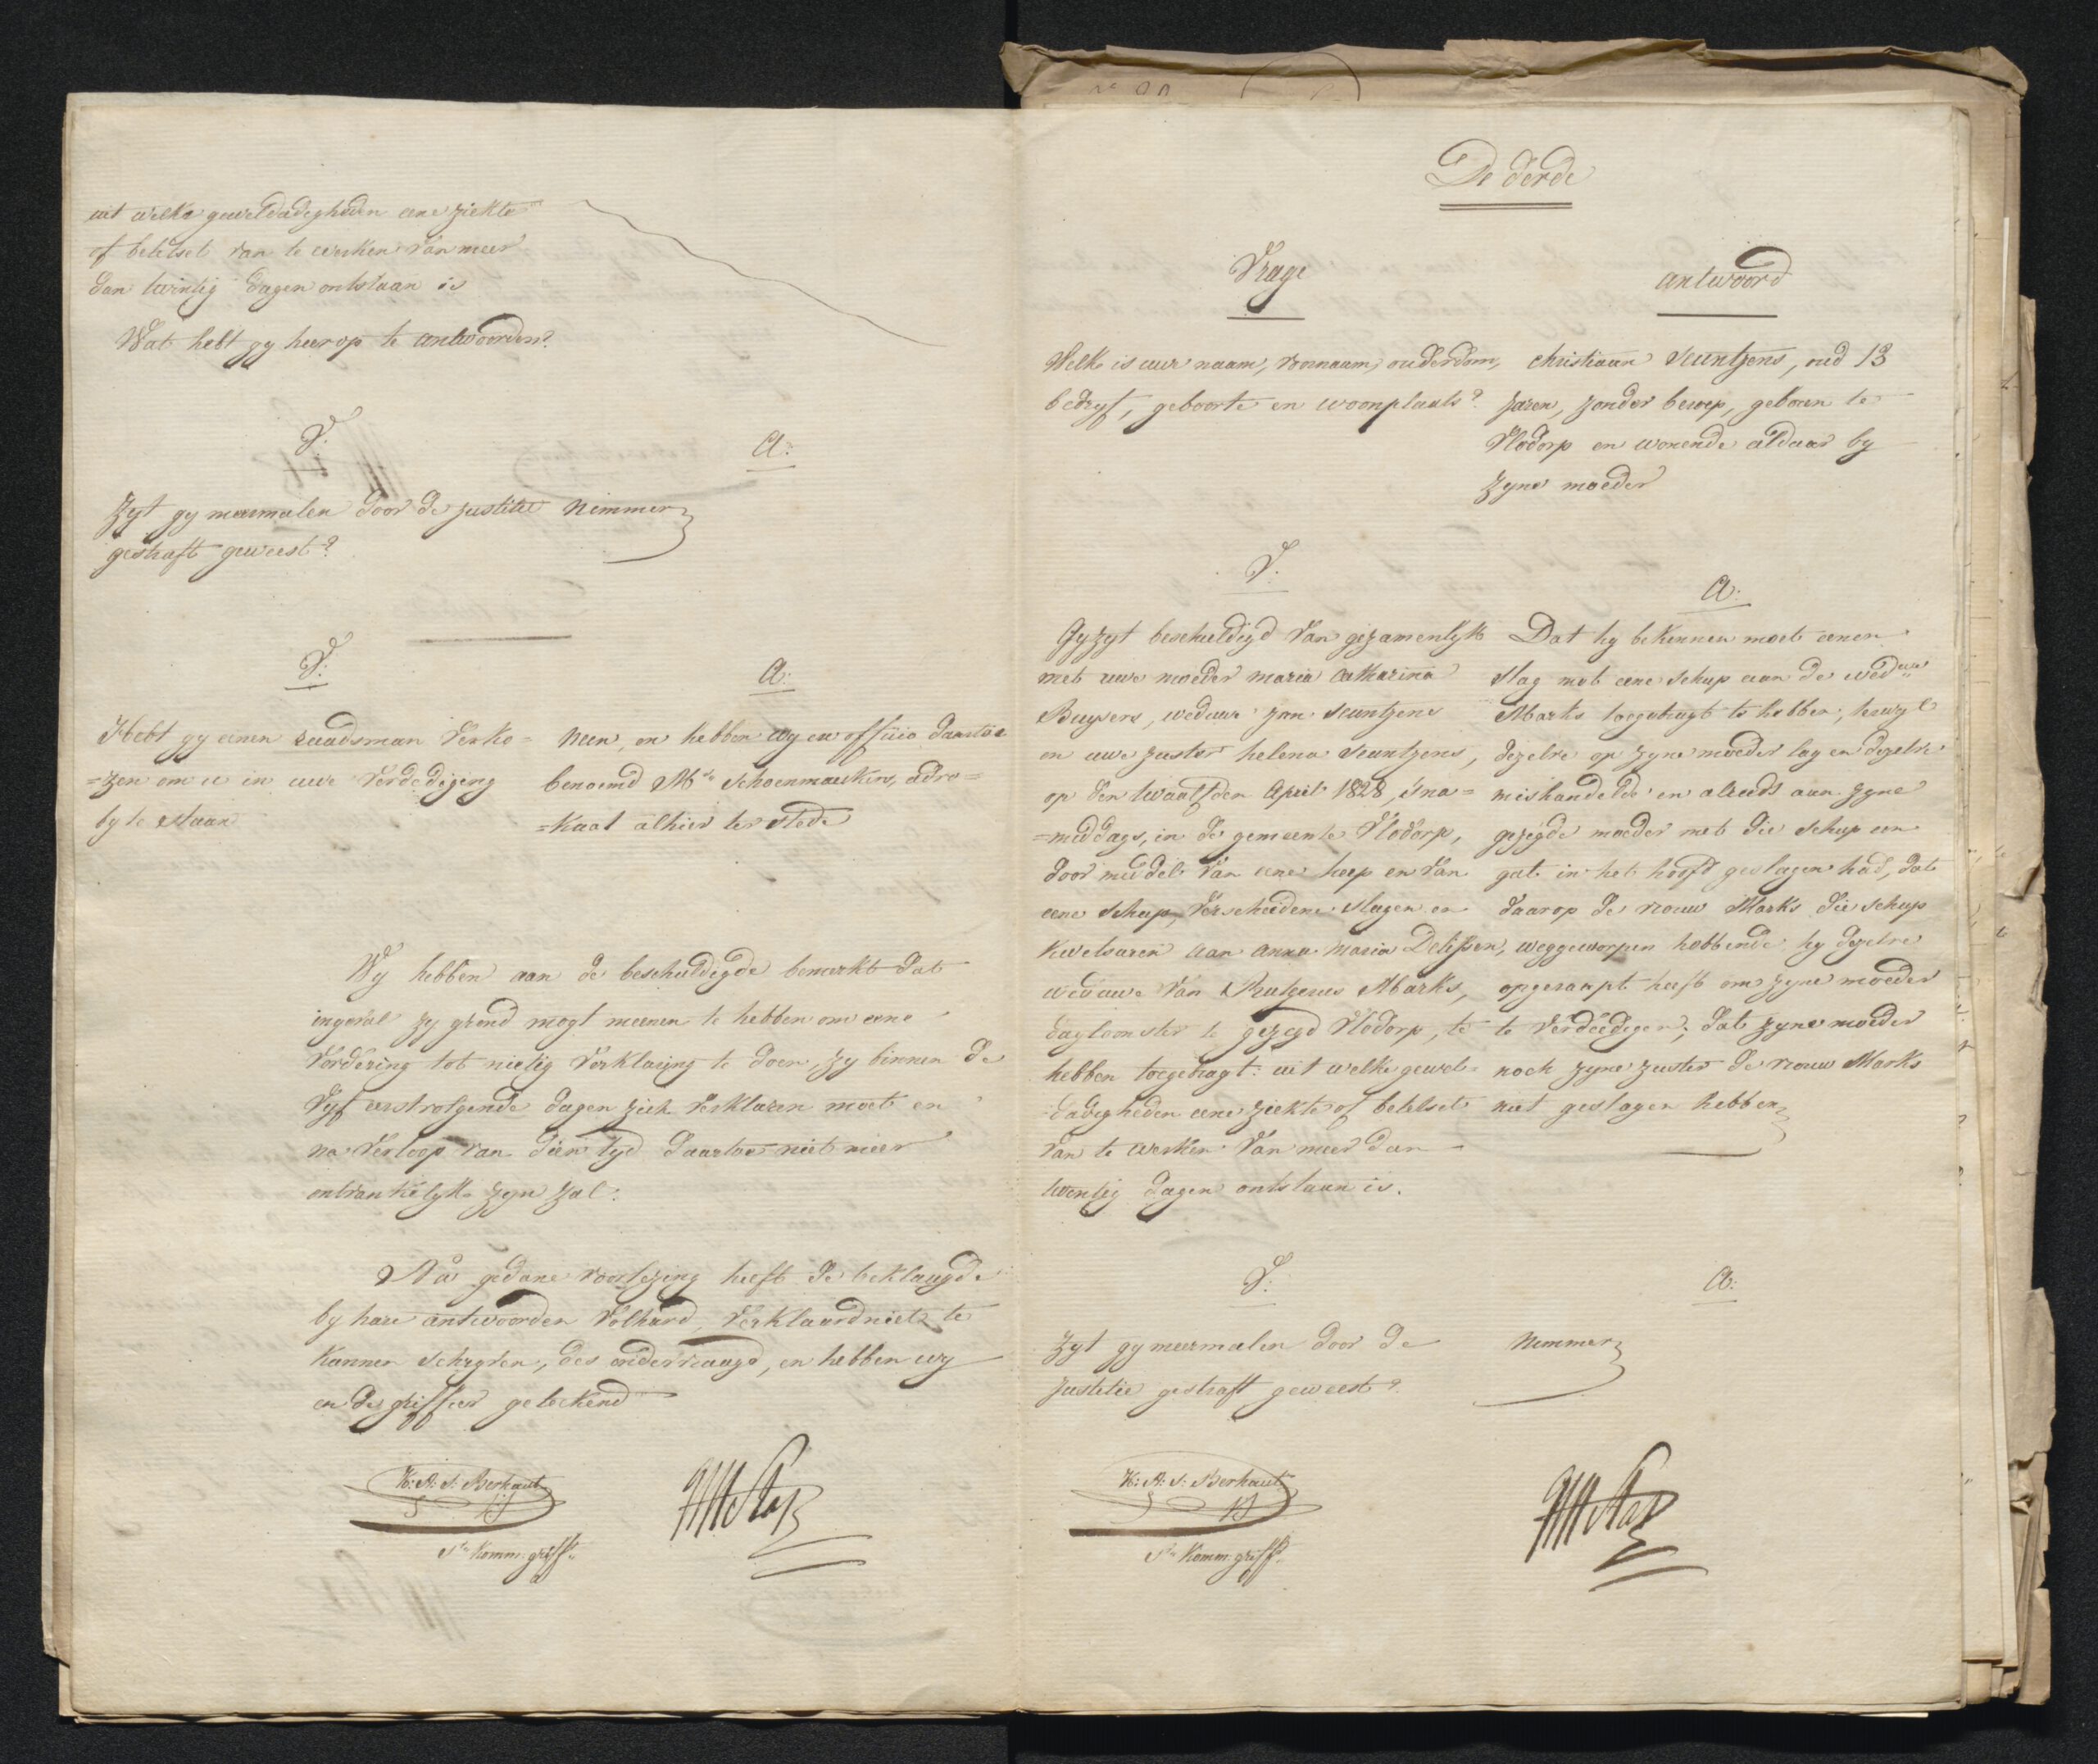 uit welke geweldadigheden eene ziekte
of beletsel van te werken van meer
dan twintig dagen ontstaan is
Wat hebt gy hierop te antwoorden?
V:
A:
Zyt gy meermalen door de justitie
gestraft geweest?
Nimmer
V:
A:
Hebt gy eenen raadsman verko=
=zen om u in uwe verdediging
by te staan
Neen, en hebben wy ex officio daartoe
benoemd Mr. Schoenmaekers, advo=
=kaat alhier ter stede
Wy hebben aan de beschuldigde bemerkt dat
ingeval zy grond mogt meenen te hebben om eene
vordering tot nietig verklaring te doen, zy binnen de
vyf eerstvolgende dagen zich verklaren moet en
na verloop van dien tyd daartoe niet meer
ontvankelyk zyn zal.
Na gedane voorlezing heeft de beklaagde
by hare antwoorden volhard, verklaard niet te
kunnen schryven, des ondervraagd, en hebben wy
en de griffier geteekend
K: A: J: Berhaut
Komm. griff.
De derde
Vrage
antwoord
Welke is uwe naam, voornaam, ouderdom,
bedryf, geboorte en woonplaats?
Christiaan Seuntjens, oud 13
jaren, zonder beroep, geboren te
Vlodorp en wonende aldaar by
zyne moeder
V.
A:
Gy zyt beschuldigd van gezamenlyk
met uwe moeder maria Catharina
Buysers, weduwe jan Seuntjens
en uwe zuster helena Seuntjens,
op den twaalfden April 1828, s'na=
=middags, in de gemeente Vlodorp,
door middel van eene heep en van
eene schup, verscheidene slagen en
kwetsuren aan anna maria Delissen,
weduwe van Rutgerus Marks,
dagloonster te gezegd Vlodorp, te
hebben toegebragt: uit welke gewel=
=dadigheden eene ziekte of beletsel
van te werken van meer dan
twintig dagen ontstaan is.
Dat hy bekennen moet eenen
slag met eene schup aan de weduwe
Marks toegebragt te hebben, terwyl
dezelve op zyne moeder lag en dezelve
mishandelde en alreeds aan zyne
gezegde moeder met die schup een
gat in het hoofd geslagen had, dat
daarop de vrouw Marks die schup
weggeworpen hebbende hy dezelve
opgeraapt heeft om zyne moeder
te verdedigen; dat zyne moeder
noch zyne zuster de vrouw Marks
niet geslagen hebben
V:
A:
Zyt gy meermalen door de
Justitie gestraft geweest?
Nimmer
K: A: J: Berhaut
Komm. griff.